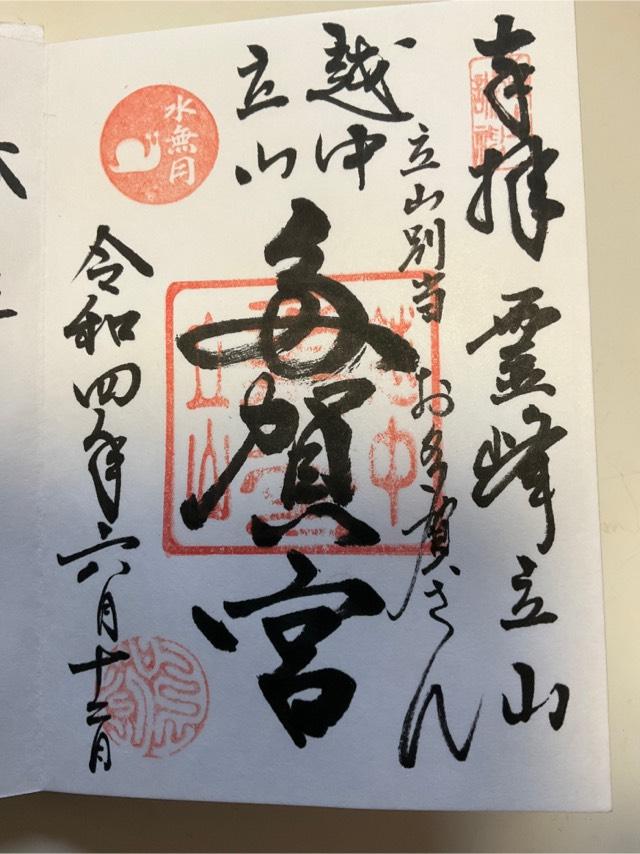 奉拝
霊峰立山
立山別当 お多賀さん
越中
立山
多賀宮
水無月
令和四年六月十二日